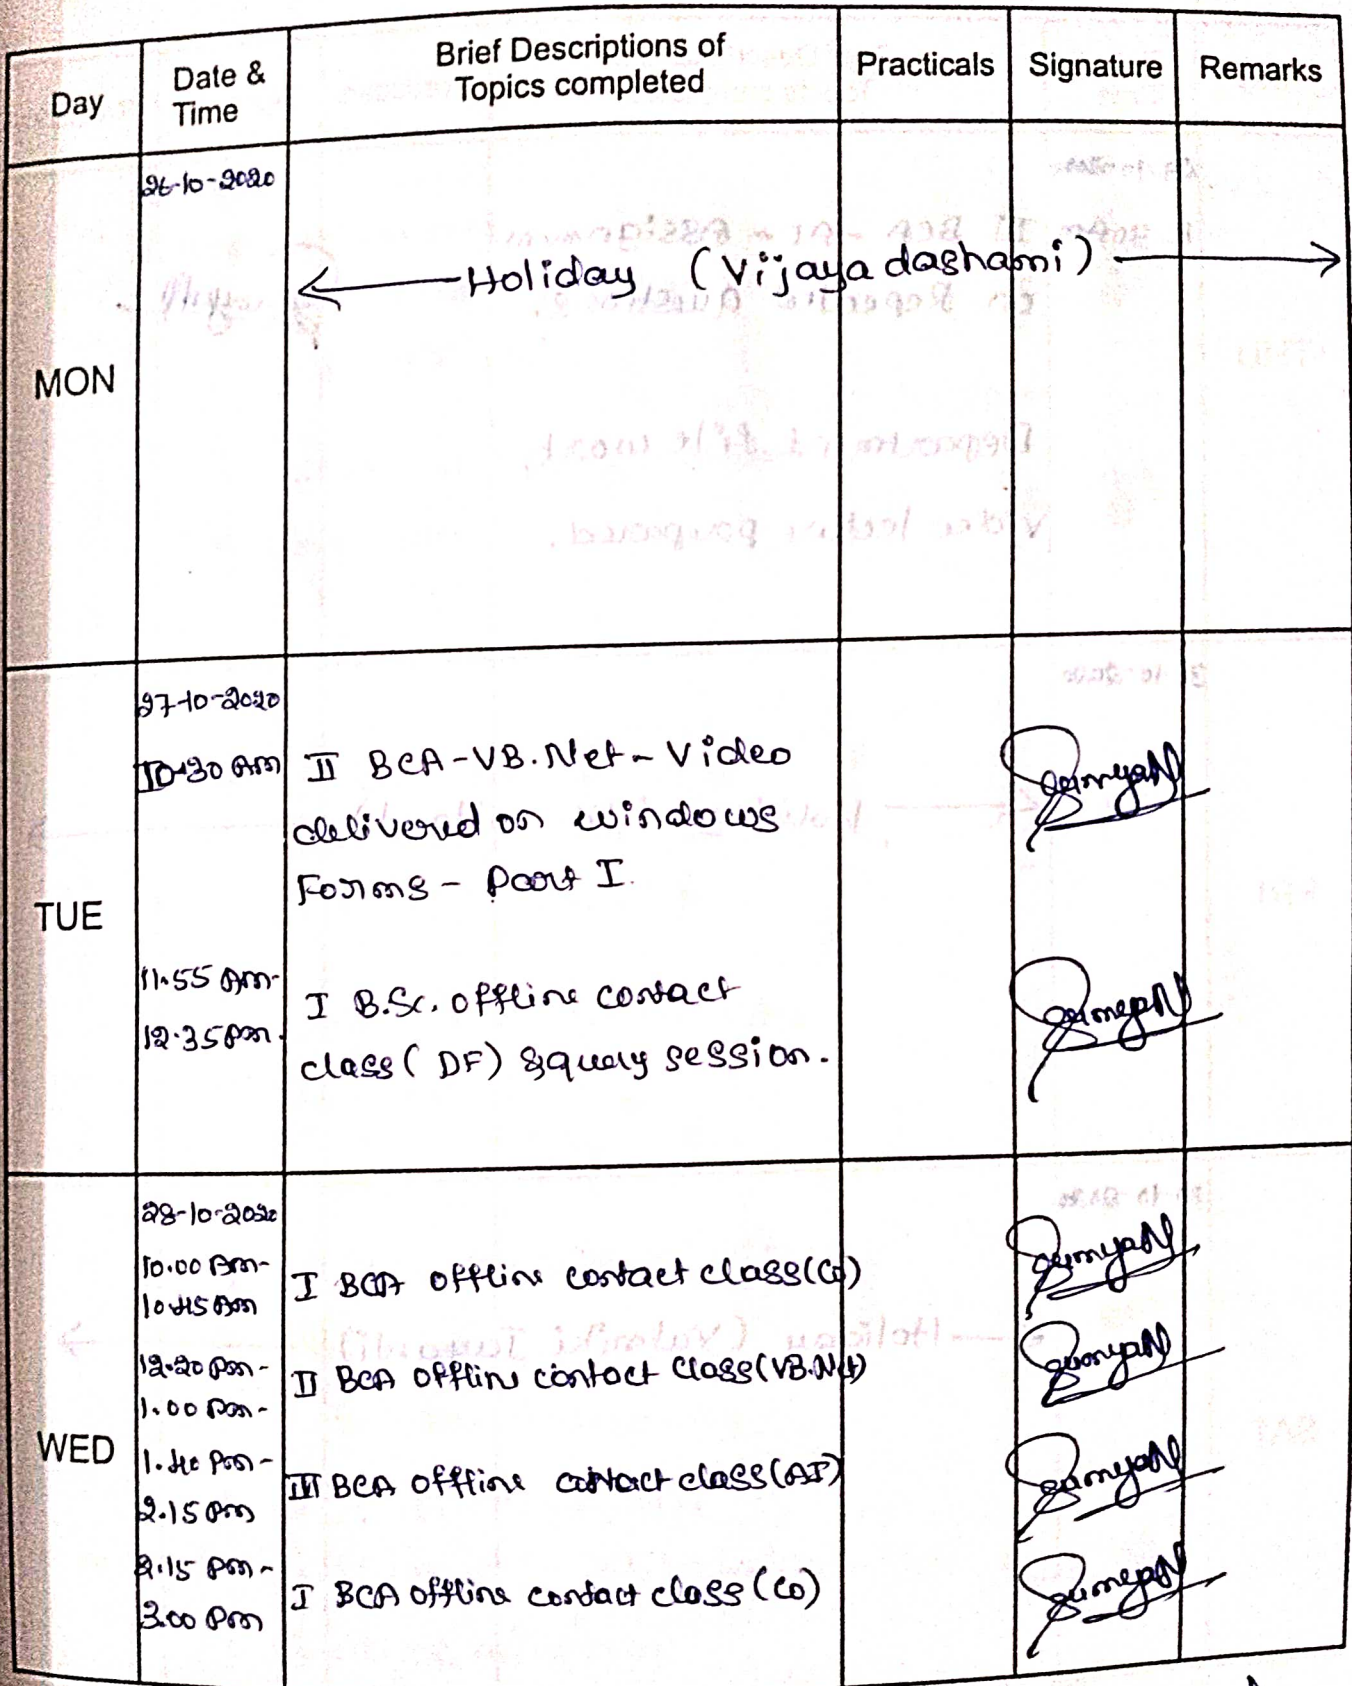 Day
Date &
Time
Brief Descriptions of
Topics completed
Practicals
Signature
Remarks
MON
26-10-2020
Holiday (Vijaya dashami)
TUE
27-10-2020
10.30 Am
II BCA-VB.Net - Video
delivered on windows
Forms - Part I.
11.55 Am-
12.35 pm.
I B.Sc. offline contact
class (DF) & query session.
WED
28-10-2020
10.00 Am-
10.45 Am
I BCA offline contact class (CO)
12.20 pm-
1.00 Pm-
II BCA offline contact class (VB.Net)
1.40 Pm-
2.15 Pm
III BCA offline contact class (AI)
2.15 pm-
3.00 Pm
I BCA offline contact class (CO)